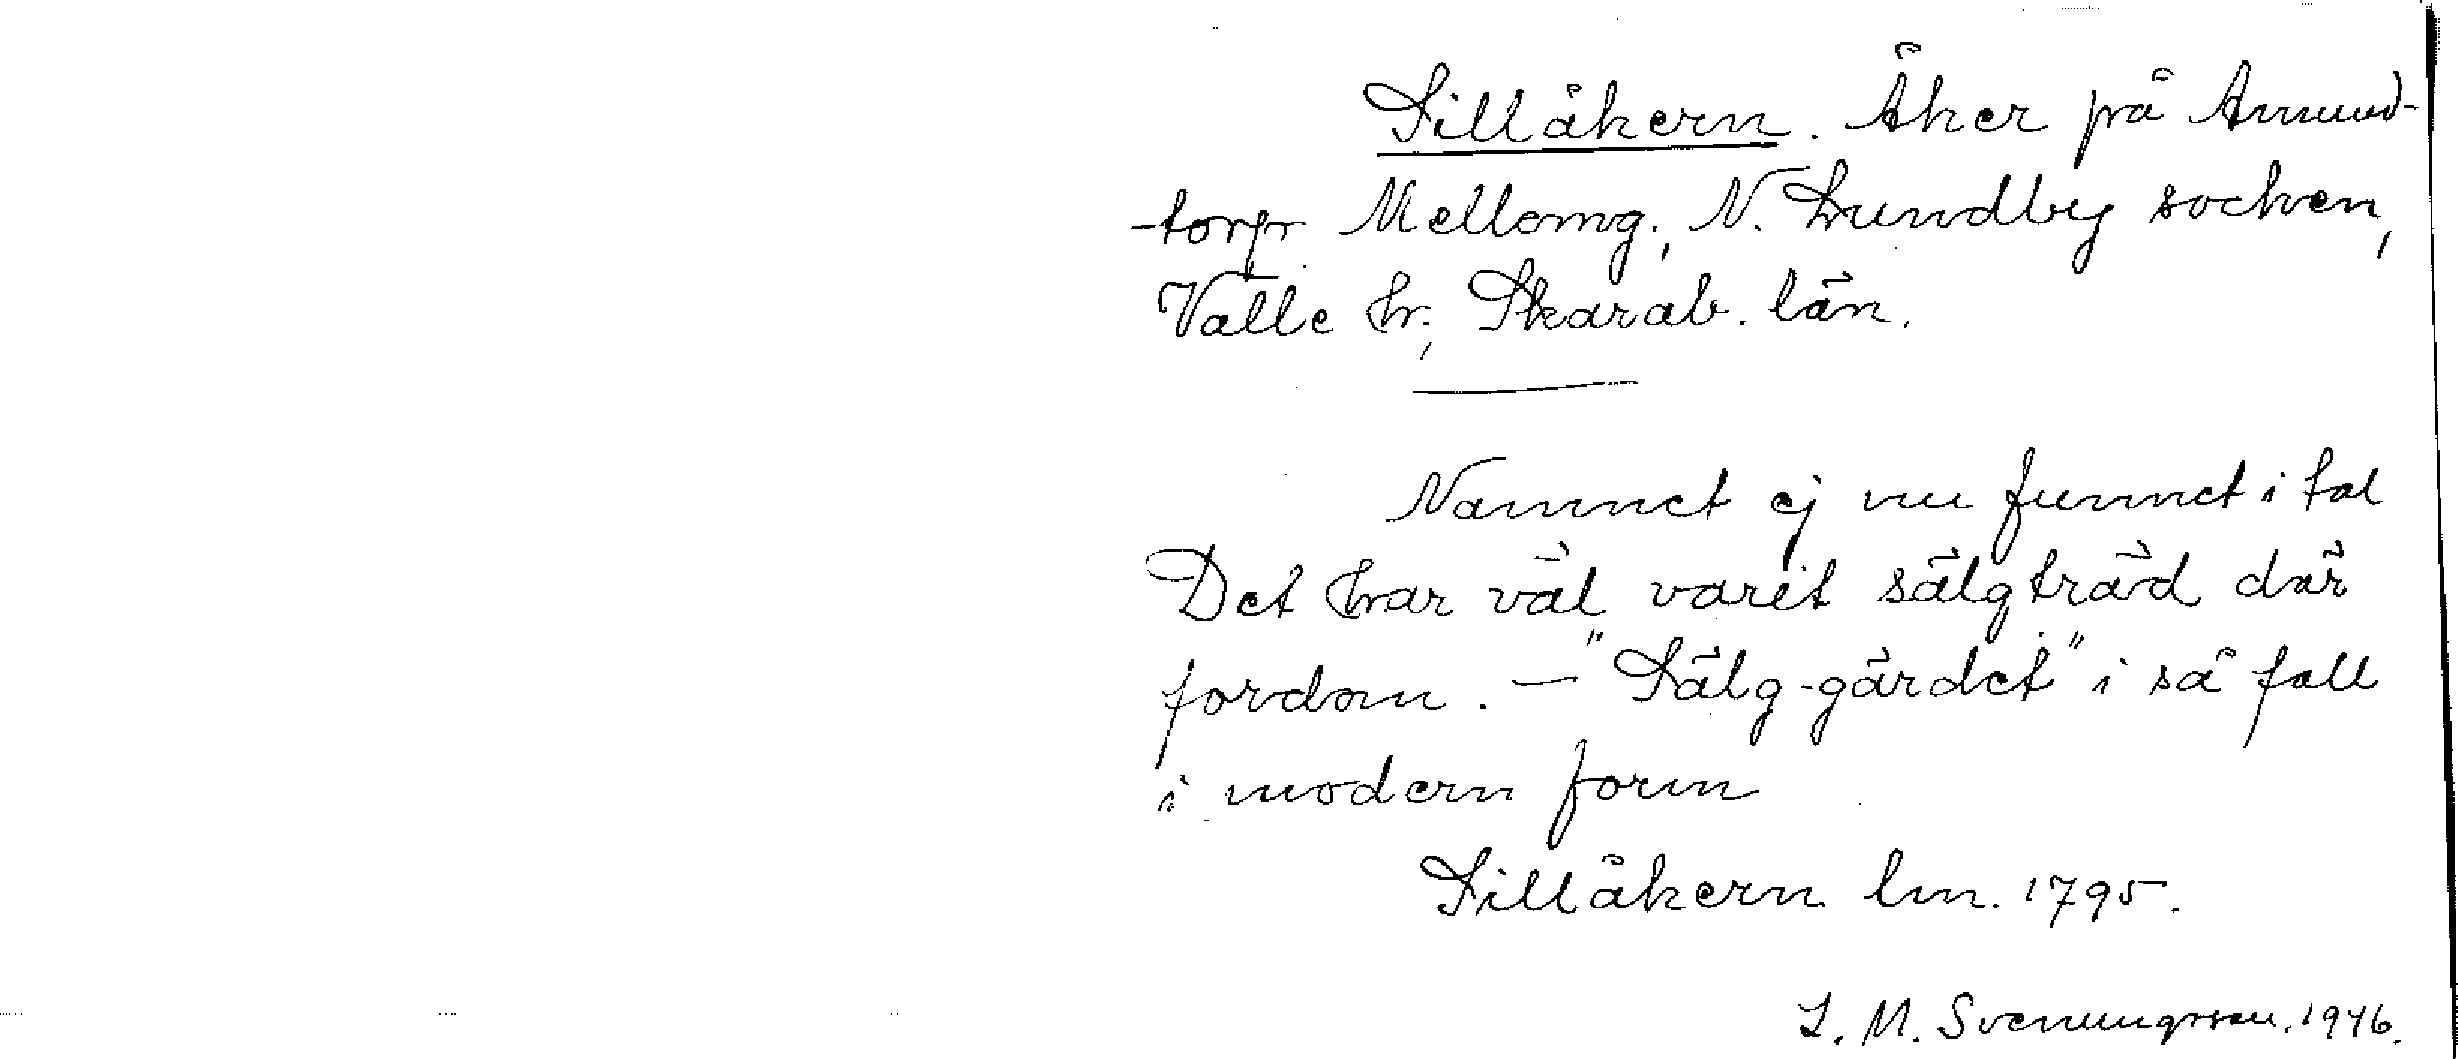 Sillåkern. Åker på Amund-
-torp Mellomg., N. Lundby socken,
Valle hr., Skarab. län.
Namnet ej nu funnet i tal
Det har väl varit sälgträd där
fordom. — "Sälg-gärdet" i så fall
i modern form
Sillåkern lm. 1795.
L. M. Svenungsson. 1946.